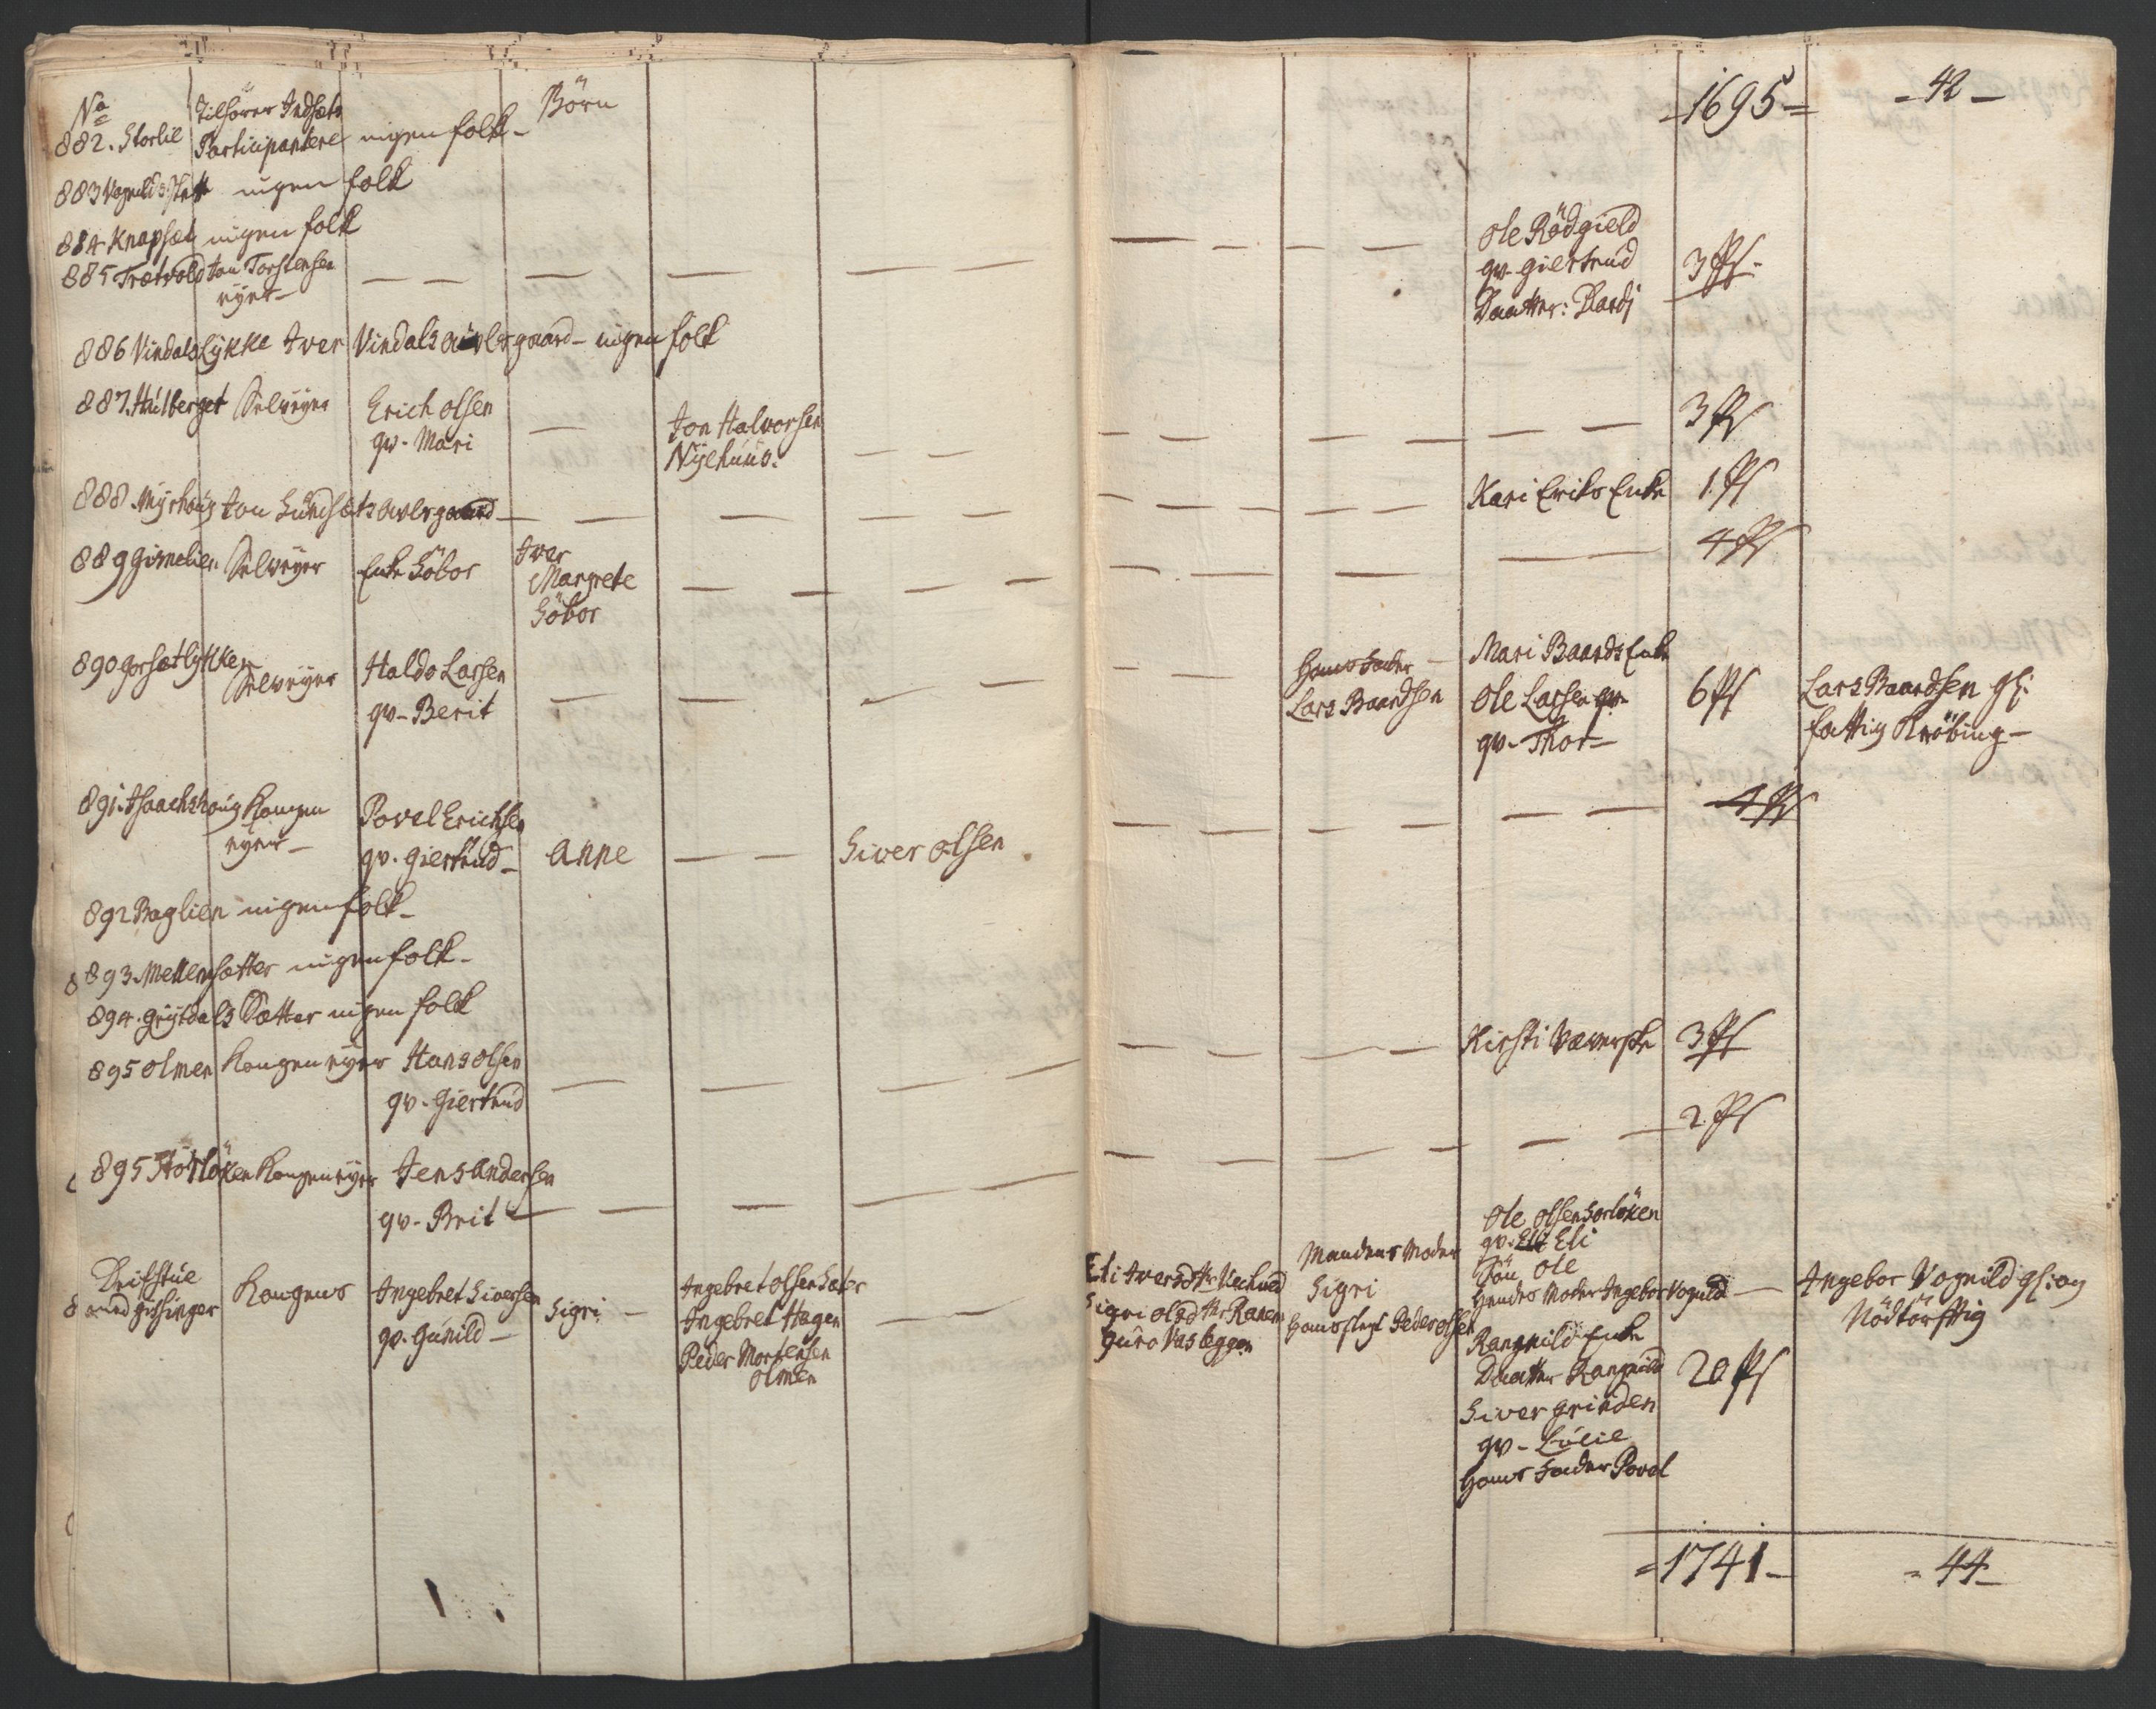 No
Tilhører Indsæts Börn
882. Storlie Participantere ingen folk -
883 Vognilds Slett ingen folk
884 Knapsæt ingen folk
885 Trætvold Jon Torstensen
eyer -
886 Vindalslykke Iver Vindals avlsgaard - ingen folk
887. Hulberget Selveyer Erich Olsen
qv. Mari
Jon Halvorsen
Nyehuus.
888. Myrhoug Jon Lundsæts avlsgaard -
889 Gismolien Selveyer Enke Söbor
Iver
Margrete
Söbor
890 Gorsætlykken
Selveyer Haldo Larsen
qv - Berit
891. Isaachshoug Kongen
eyer - Povel Erichsen
qv. Giertrud - Anne Siver Olsen
892 Baglien ingen folk -
893. Mellemsætter ingen folk -
894. Grytdals Sætter ingen folk
895 Olmen Kongen eyer Hans Olsen
qv. Giertrud
895 Storløken Kongen eyer Jens Andersen
qv - Brit
Drifstue
med Gissinger Kongens Ingebret Siversen
qv. Gunild - Sigri -
Ingebret Olsen Sater
Ingebret Hagen
Peder Mortensen
Olmen
=1695= - 42 -
Ole Rödgield
qv. Giertrud
Daatter: Mardj
3 Ps -
3 Ps
Kari Eriks Enke 1. Ps
4 Ps
Hans Fader
Lars Baardsen
Mari Baards Enke
Ole Larsen qv.
qv - Thor -
6 Ps
Lars Baardsen gl.
fattig Krøbing -
4 Ps
Kirsti Væverske 3 Ps
2 Ps
Eli Iversdtr
Sigri Olsdtr Ranem
Guro Vasleggen
Mandens Moder
Sigri
Hans slegt Peder Olsen
Ole Olsen Storlöken
qv. Eli
Sön Ole
Hendes Moder Ingebor Vognild -
Rangnild Enke
Daatter Rangnild
Siver Grinden
qv - Lucie
Hans Fader Povel
20 Ps
Ingebor Vognild gl. og
Nödtörfftig
=1741- - 44 -